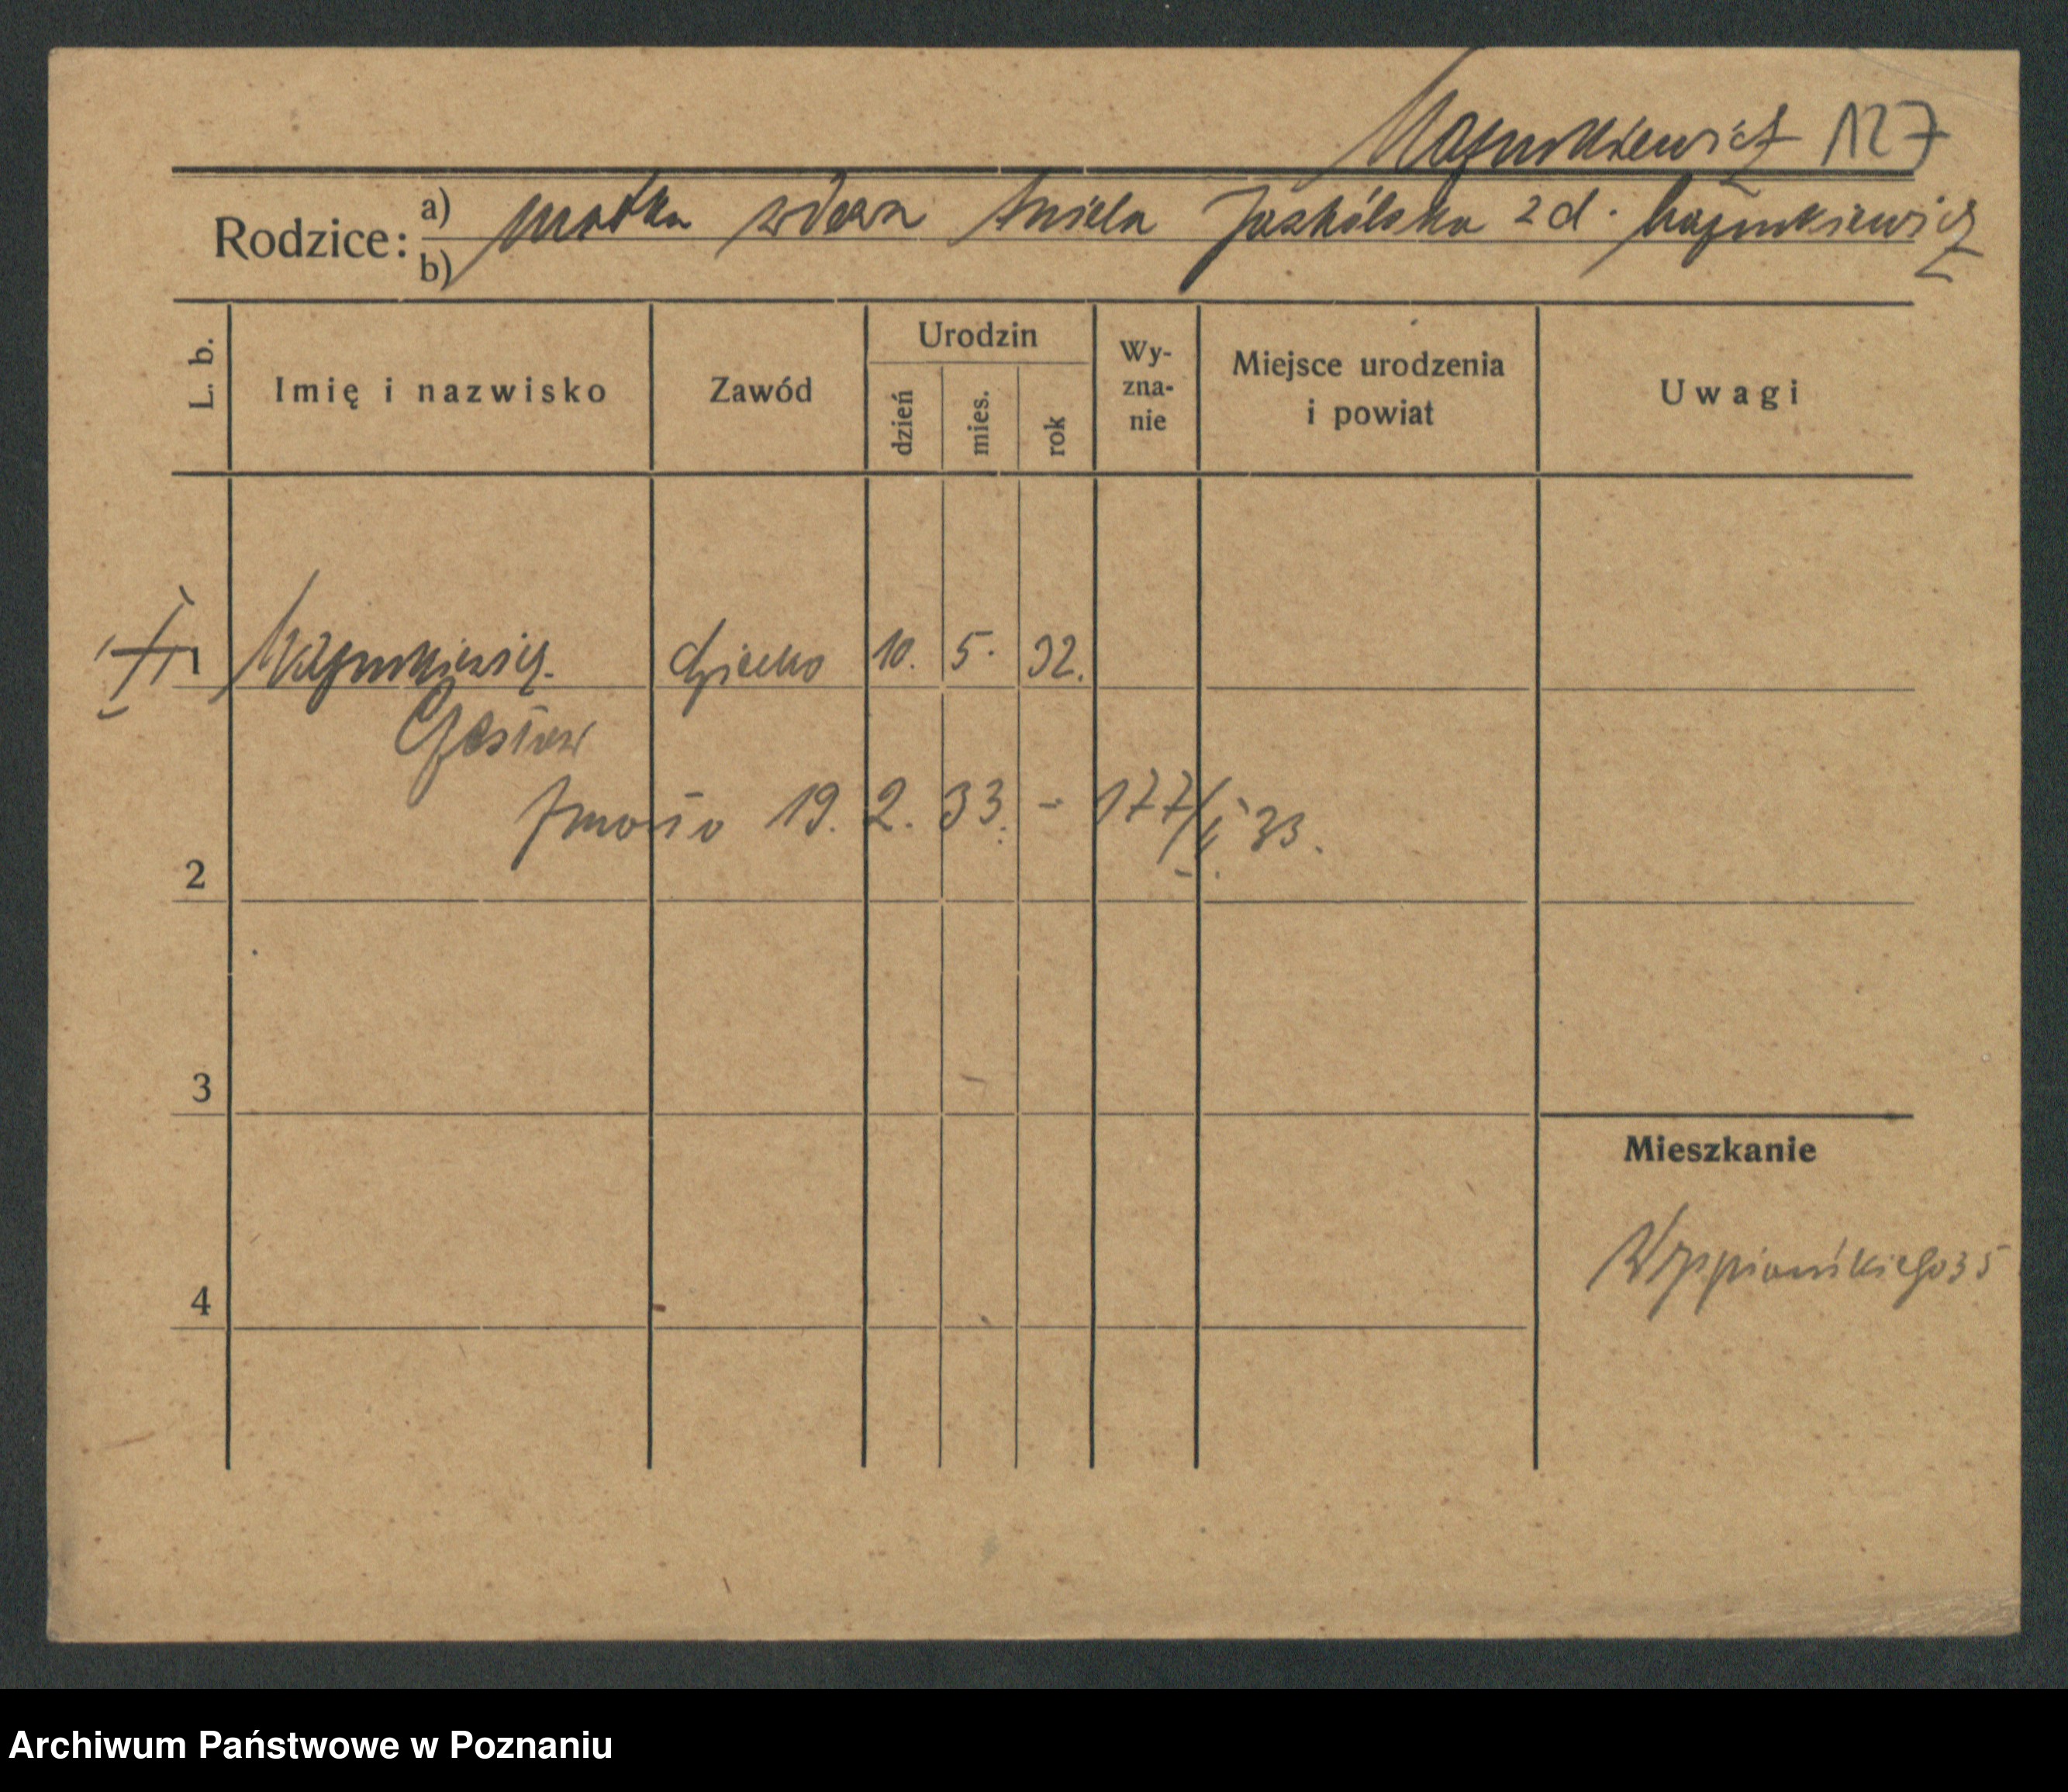 127
Rodzice:
a) matka wdowa Aniela Jaskólska z d.
b)
L. b.
Imię i nazwisko
Zawód
Urodzin
dzień
mies.
rok
Wy-
zna-
nie
Miejsce urodzenia
i powiat
Uwagi
1 dziecko 10. 5. 32.
Czesław
zmarło 19. 2. 33. - 177/ 33.
2
3
4
Mieszkanie
Wyspiańskiego 35
Archiwum Państwowe w Poznaniu